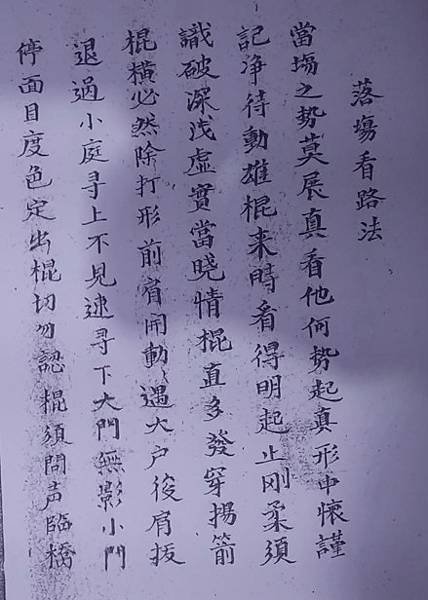 落塲看路法
當塲之势莫展真看他何势起真形中懷謹
記净待動雄棍来時看得明起止刚柔須
識破深浅虚實當晓情棍直多發穿揚箭
棍橫必然除打形前肩開動遇大户後肩拔
退過小庭寻上不見速寻下大門無影小門
停面目度色定出棍切勿認棍須問声臨橋